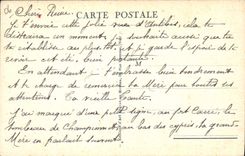 Chère Reine
CARTE POSTALE
Je t'envoie cette jolie vue d'Antibes, cela te
distraira un moment, je souhaite aussi que tu
te rétablisse au plus tôt et je garde l'espoir de te
revoir et bien portante.
En attendant je t'embrasse bien tendrement
et te charge de remercier ta Mère pour toutes ses
attentions. Ta vieille
J'ai marqué d'une petit signe, au fort Carré, le
tombeau de Championnet au bas des cyprès la grand
Mère en parlait souvent